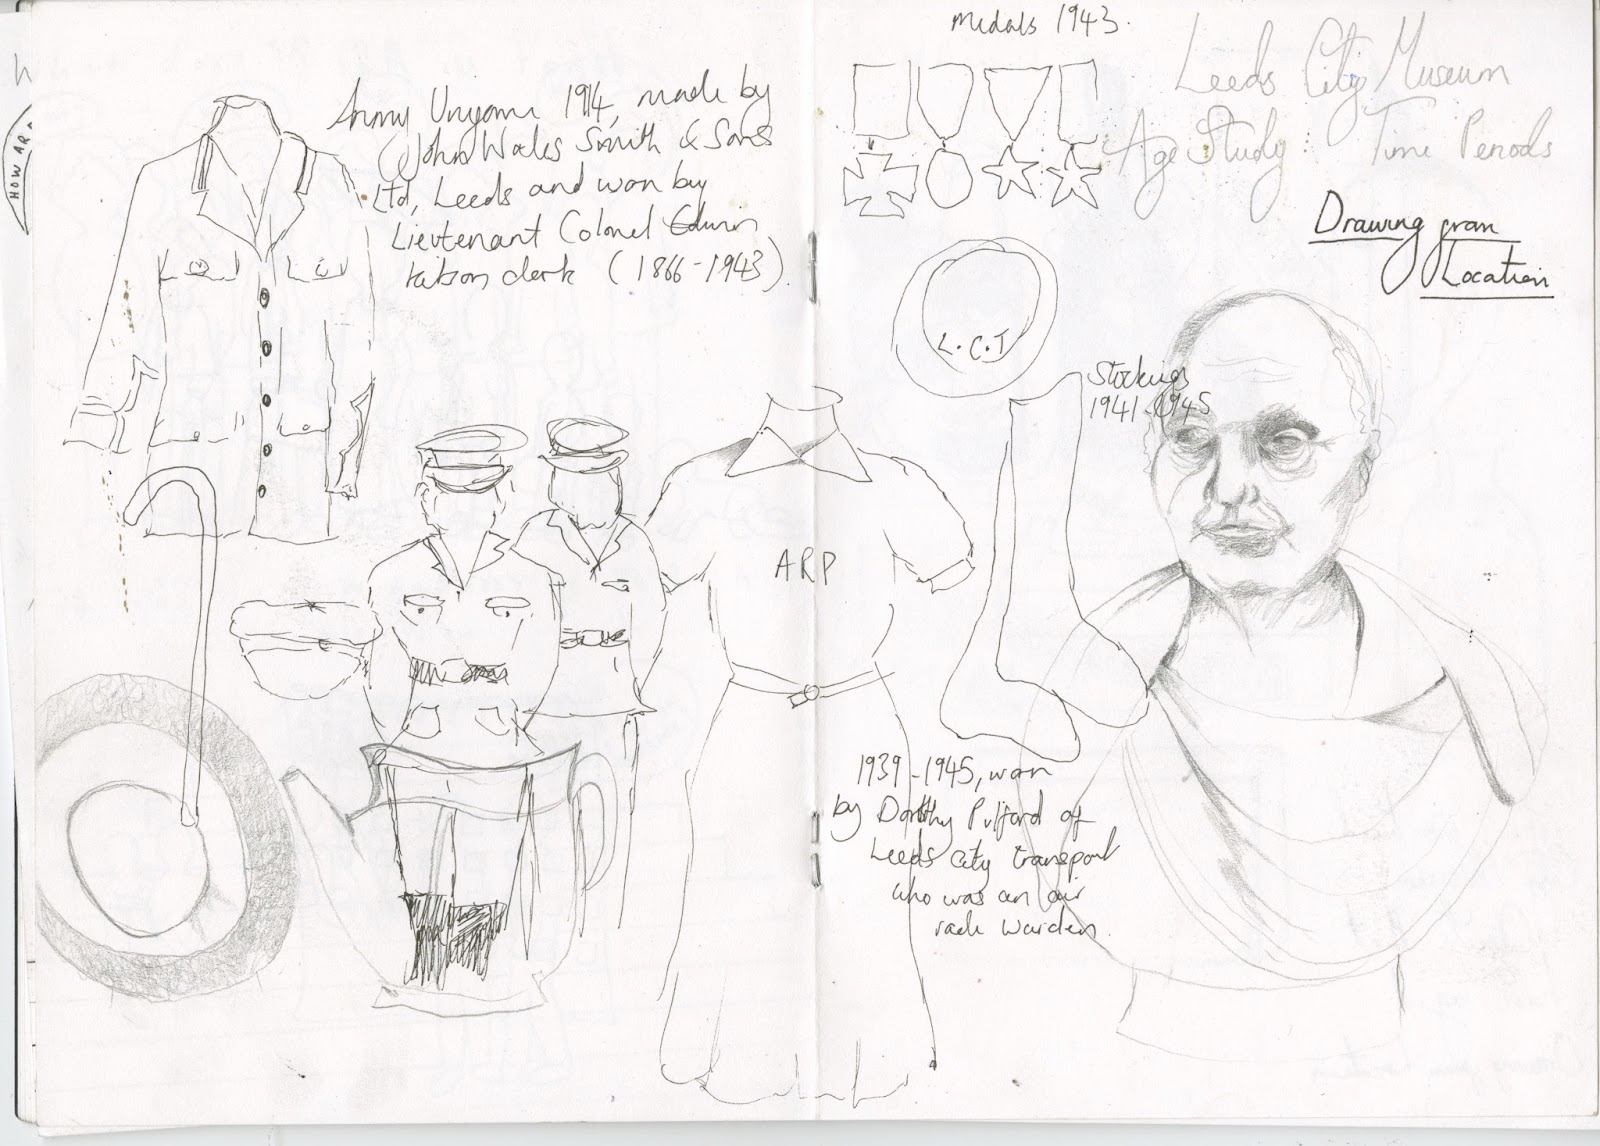 HOWAR
Army Unyorm 1914, made by
John Wales Smith & Sons
Ltd, Leeds and worn by
Lieutenant Colonel Edwin
Kitson Clerk (1866-1943)
Medals 1943.
Leeds City Museum
Age Study Time Periods
Drawing from
Location
L.C.T
Stockings
1941-1945
ARP
1939-1945, worn
by Dorothy Pulford of
Leeds city transport
who was an air
warden.